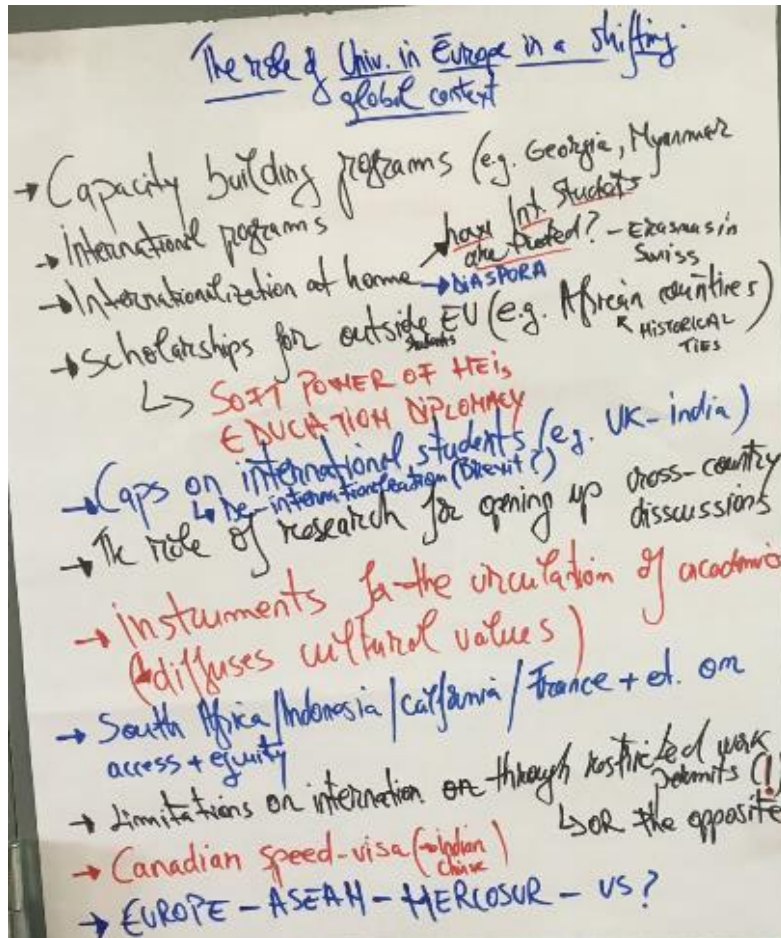 The role of Univ. in Europe in a shifting
global context
→ Capacity building programs (e.g. Georgia, Myanmar
→ International programs
→ Internationalization at home
Int. Students
? - Erasmus in
Swiss
→ DIASPORA
→ Scholarships for outside EU (e.g. African countires)
students
HISTORICAL
TIES
SOFT POWER OF HEIs
EDUCATION DIPLOMACY
→ Caps on international students (e.g. UK-india)
↳ De-internationalization (Brexit?)
→ The role of research for opening up cross-country
disscussions
→ instruments for the circulation of academic
diffuses cultural values)
→ South Africa/Indonesia/California/France + et. on
access + equity
→ Limitations on internation on through restricted work
permits (!)
↳ OR the opposite
→ Canadian speed-visa (→ Indian
→ EUROPE - ASEAN - MERCOSUR - US?